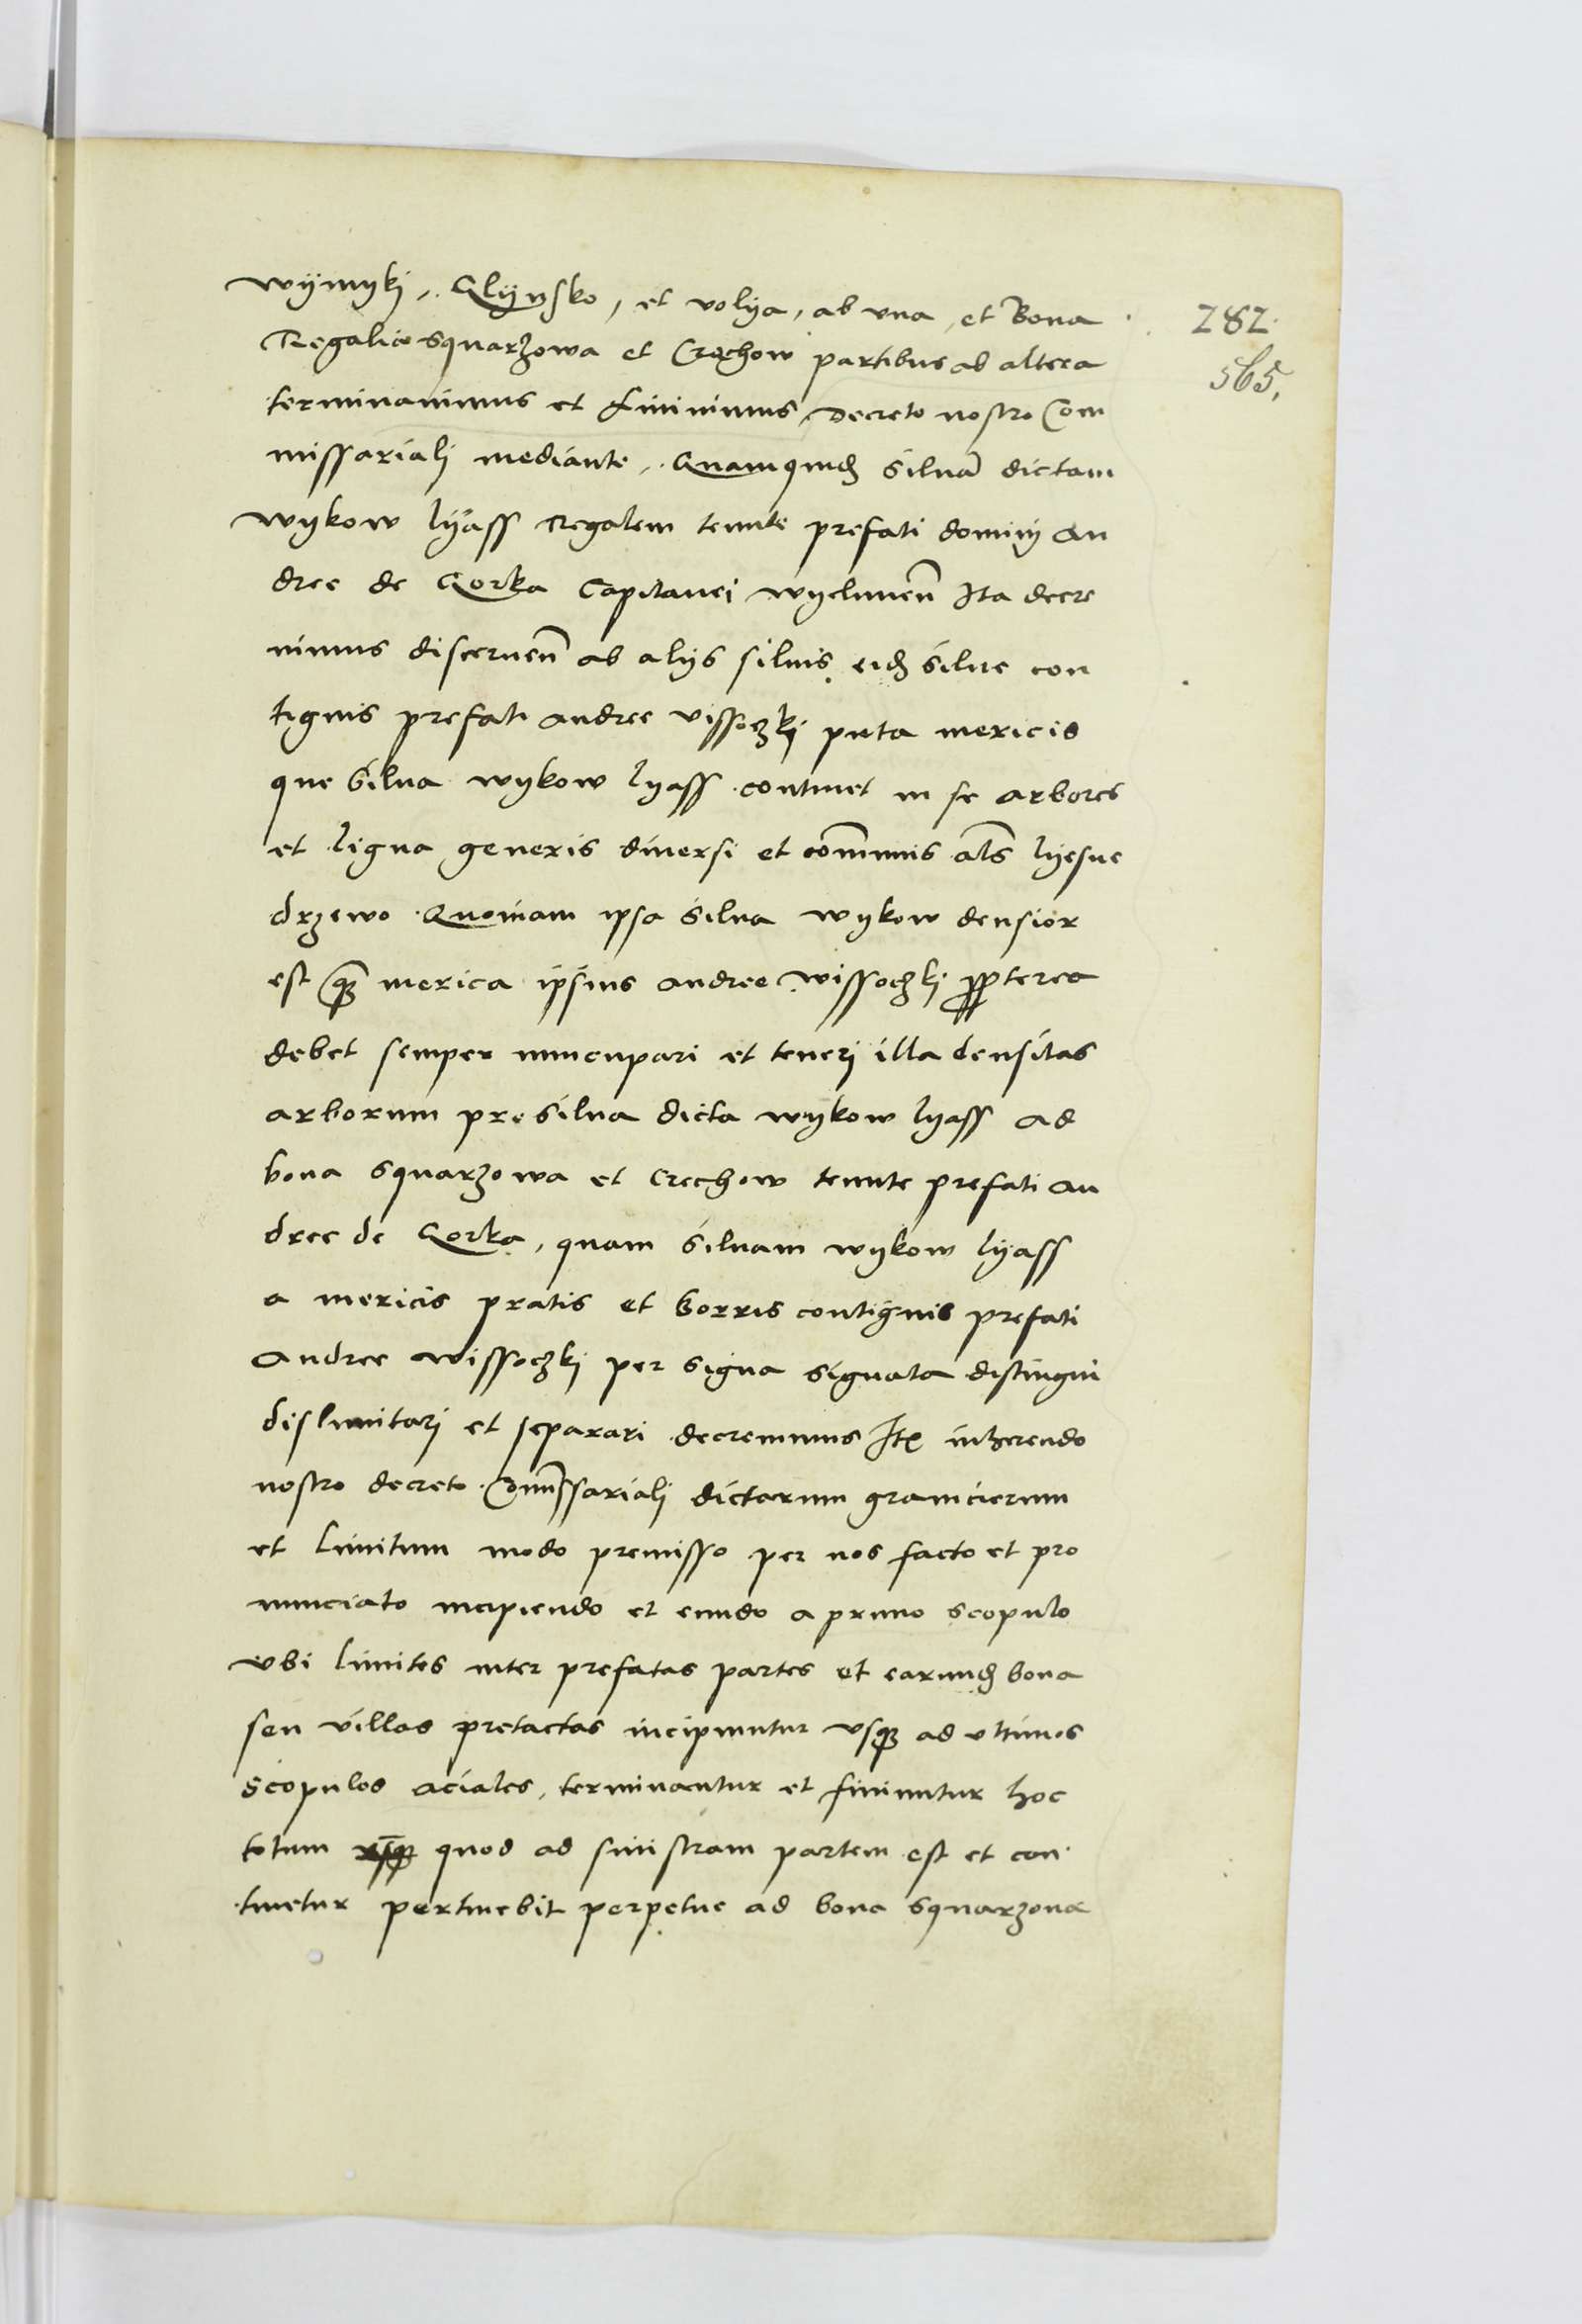 wijmykj, Glijnsko, et volya, ab vna et Bona
Regalia squarzowa et Crechow partibus ab altera
terminauimus et finiuimus, Decreto nostro Com
missarialj mediante, Quamquid silua dictam
wykow lyass Regalem tenute prefati dominj An
dree de Gorka Capitanej wyelunen Ita decre
uimus discernen ab alijs siluis eid silue con
tiguis prefati Andree vissoczkj puta mericis
que silua wykow lyass continet in se arbores
et ligna generis diuersi et comunis als lyesne
drzewo Quoniam ipsa silua wykow densior
est qz merica ipsius Andree wissoczkj propterea
debet semper nuncupari et tenerj illa densitas
arborum pro silua dicta wykow lyass ad
bona squarzowa et Crechow tenute prefati An
dree de Gorka, quam siluam wykow lyass
a mericis pratis et borris contiguis prefati
Andree wissoczkj per signa signata distingui
dislimitarj et separari decreuimus Ite inherendo
nostro decreto Comissarialj dictarum granicierum
et limitum modo premisso per nos facto et pro
nunciato incipiendo et eundo a primo scopulo
vbi limites inter prefatas partes et earund bona
seu villas pretactas incipiuntur vsqz ad vltimos
scopulos aciales, terminantur et finiuntur hoc
totum quod ad sinistram partem est et con
tinetur pertinebit perpetue ad bona squarzona
282
565,